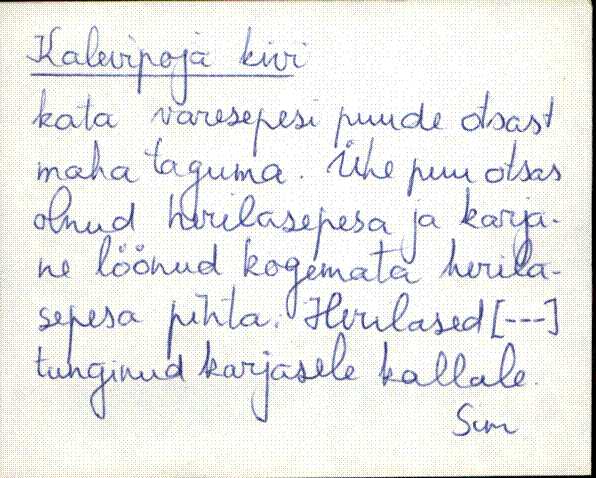 Kalevipoja kivi
kata varesepesi puude otsast
maha taguma. Ühe puu otsas
olnud herilasepesa ja karja-
ne löönud kogemata herila-
sepesa pihta. Herilased [---]
tunginud karjasele kallale.
Sim